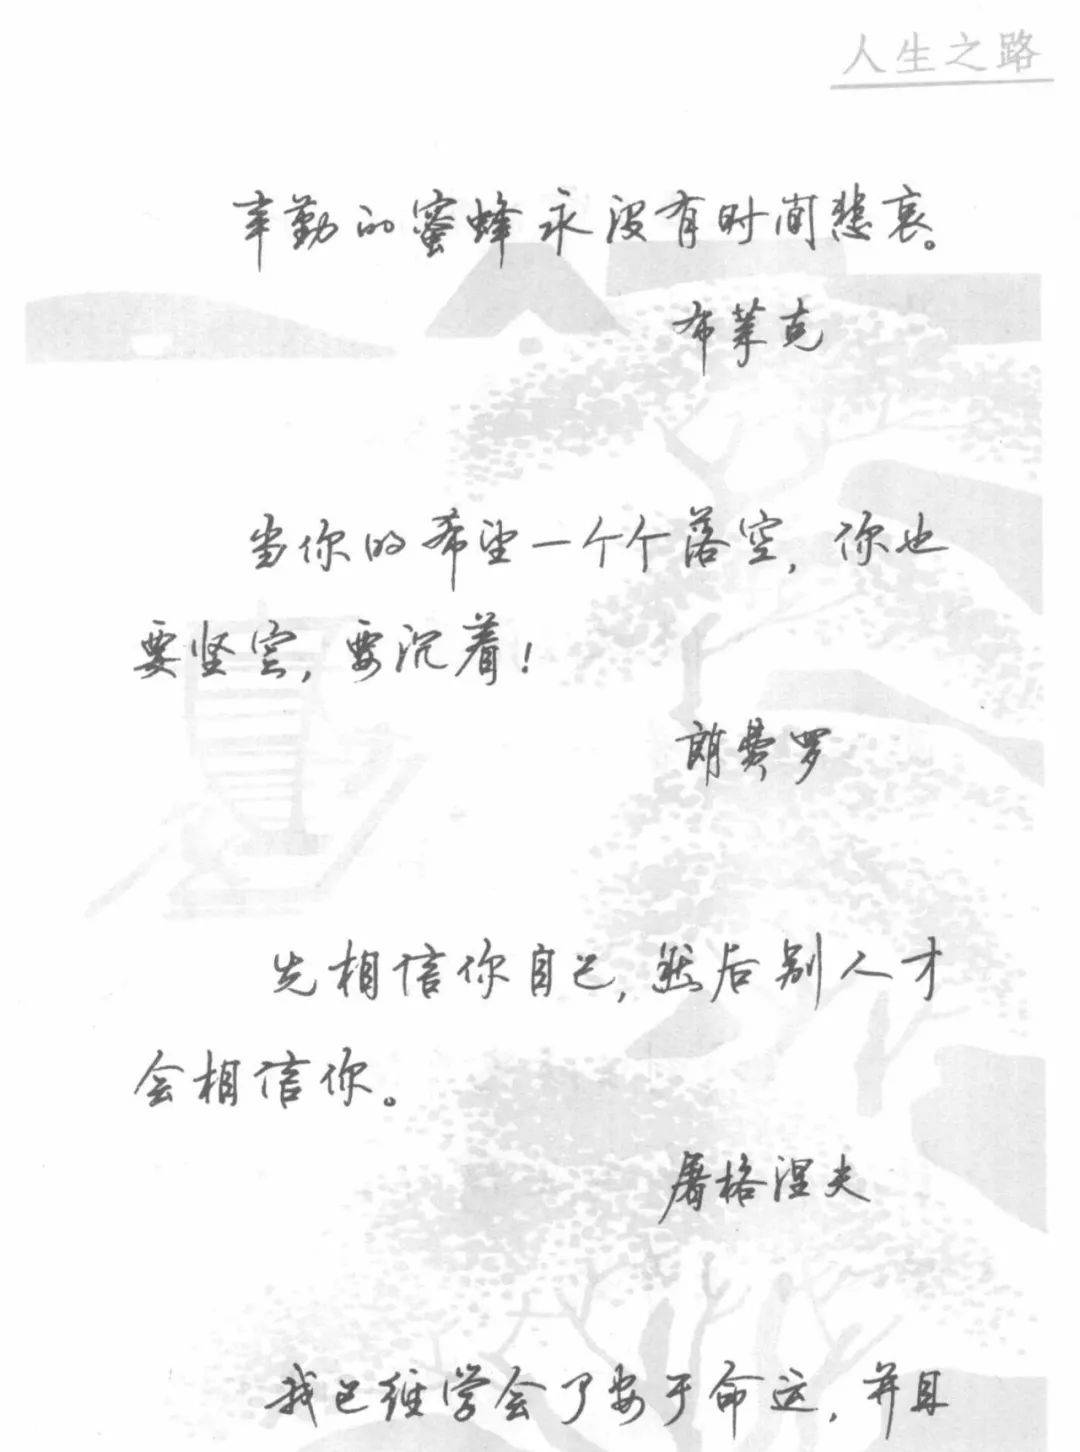 人生之路
辛勤的蜜蜂永没有时间悲哀。
布莱克
当你的希望一个个落空，你也
要坚定，要沉着！
朗费罗
先相信你自己，然后别人才
会相信你。
屠格涅夫
我已经学会了安于命运，并且